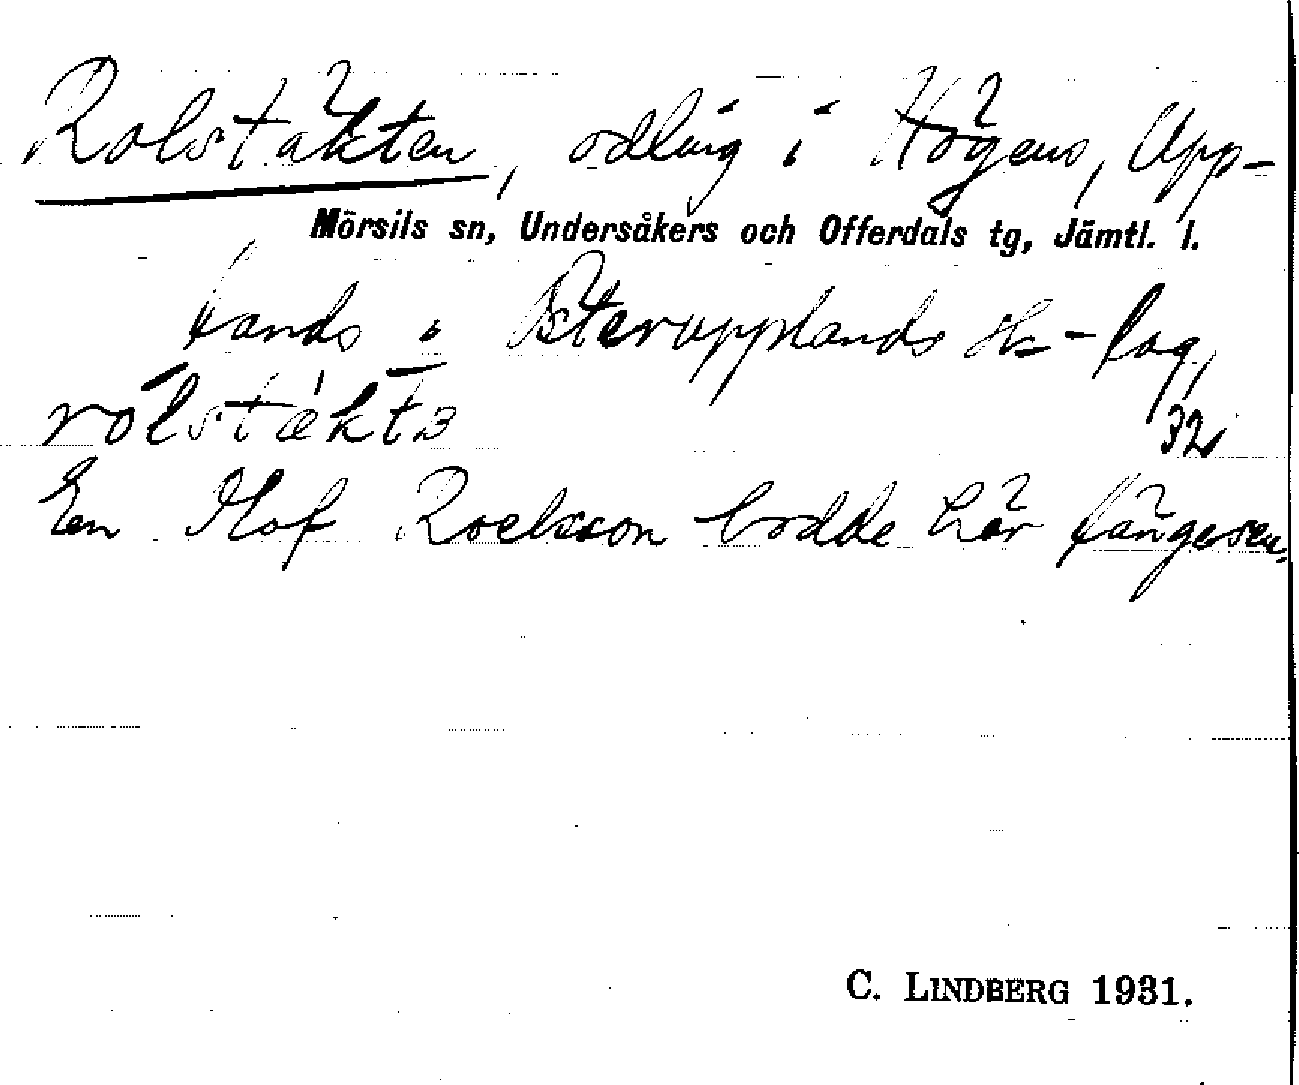 Rolstäkten, odling i Högens, Upp-
Mörsils sn, Undersåkers och Offerdals tg, Jämtl. l.
lands i Österupplands sk-lag,
rōlstækt 32
En Olof Roelsson bodde här längesen.
C. LINDBERG 1931.